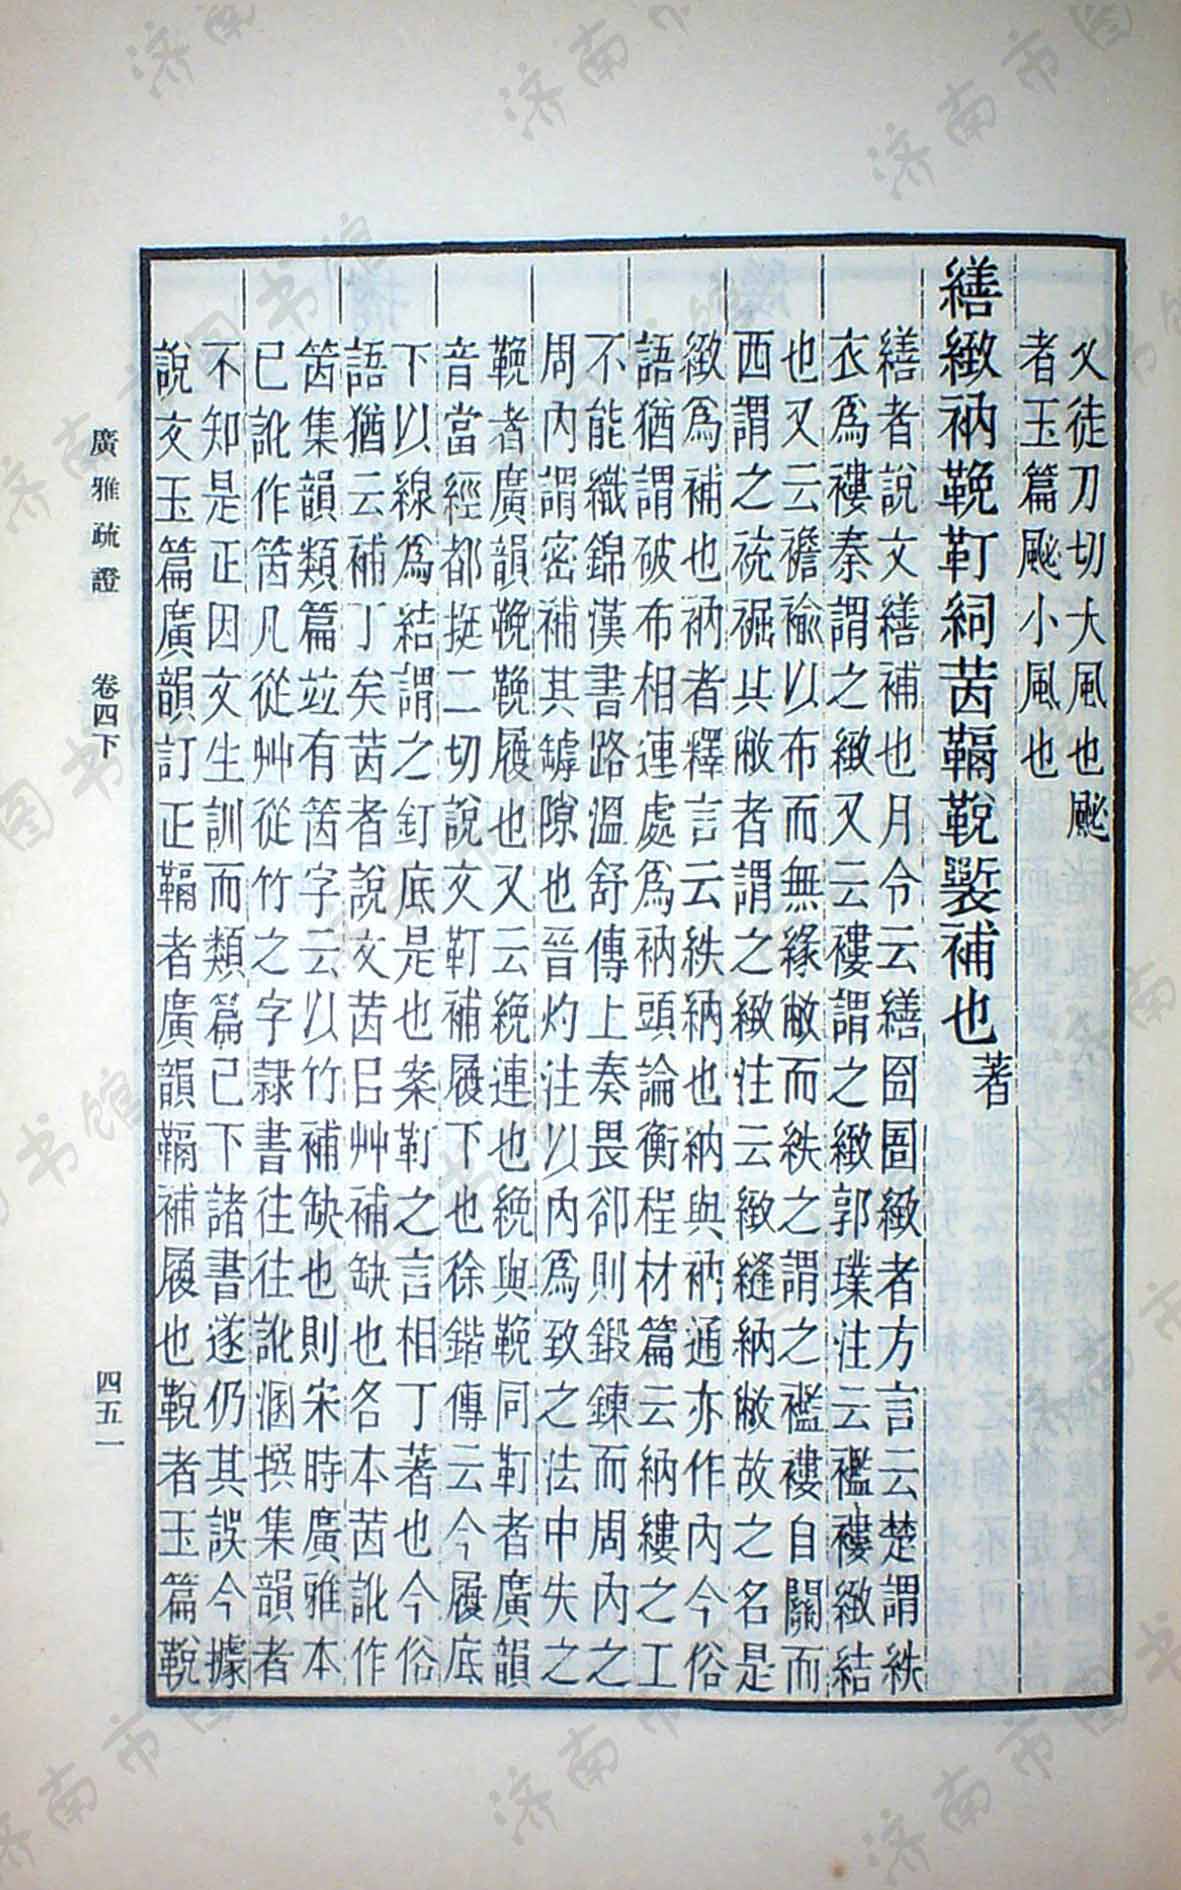 又徒刀切大風也颮
者玉篇颮小風也
繕緻衲鞔靪絧茵鞝䩱䙭補也著
繕者說文繕補也月令云繕囹圄緻者方言云楚謂紩
衣爲褸秦謂之緻又云褸謂之緻郭璞注云襤褸緻結
也又云襜褕以布而無緣敝而紩之謂之襤褸自關而
西謂之䘪䘿其敝者謂之緻注云緻縫納敝故之名是
緻爲補也衲者釋言云紩納也納與衲通亦作內今俗
語猶謂破布相連處爲衲頭論衡程材篇云納縷之工
不能織錦漢書路溫舒傳上奏畏卻則鍛鍊而周內之
周內謂密補其罅隙也晉灼注以內爲致之法中失之
鞔者廣韻鞔鞔履也又云絻連也絻與鞔同靪者廣韻
音當經都挺二切說文靪補履下也徐鍇傳云今履底
下以線爲結謂之釘底是也案靪之言相丁著也今俗
語猶云補丁矣茵者說文茵㠯艸補缺也各本茵訛作
䇮集韻類篇竝有䇮字云以竹補缺也則宋時廣雅本
已訛作䇮凡從艸從竹之字隸書往往訛溷撰集韻者
不知是正因文生訓而類篇已下諸書遂仍其誤今據
說文玉篇廣韻訂正鞝者廣韻鞝補履也䩱者玉篇䩱
廣雅疏證 卷四下 四五一